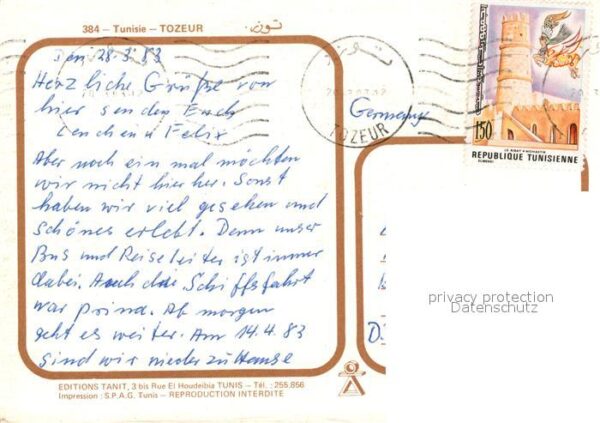 384 - Tunisie - TOZEUR توزر
Den 28.3.83
Herzliche Grüße von
hier senden Euch
Lenchen u Felix
Aber noch ein mal möchten
wir nicht hier her. Sonst
haben wir viel gesehen und
schönes erlebt. Denn unser
Bus und Reiseleiter ist immer
dabei. Auch die Schiffsfahrt
war prima. Ab morgen
geht es weiter. Am 14.4.83
sind wir wieder zu Hause
EDITIONS TANIT, 3 bis Rue El Houdeibia TUNIS - Tél. : 255.856
Impression : S.P.A.G. Tunis - REPRODUCTION INTERDITE
Germany
TOZEUR
150
LE RIBAT D'MONASTIR
REPUBLIQUE TUNISIENNE
privacy protection
Datenschutz